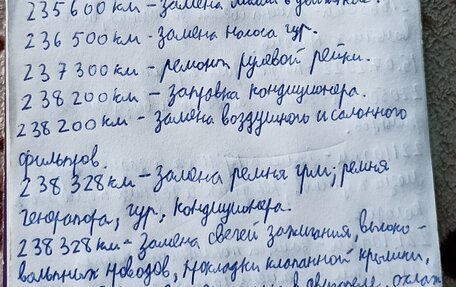 235600км - замена масла в двигателе.
236 500км - замена насоса гур.
237300км - ремонт рулевой рейки.
238200км - заправка кондиционера.
238200км - замена воздушного и салонного
фильтров.
238 328км - замена ремня грм; ремня
генератора, гур, кондиционера.
238 328км - замена свечей зажигания, высоко-
вольтных проводов, прокладки клапанной крышки,
в двигателе, охлаж